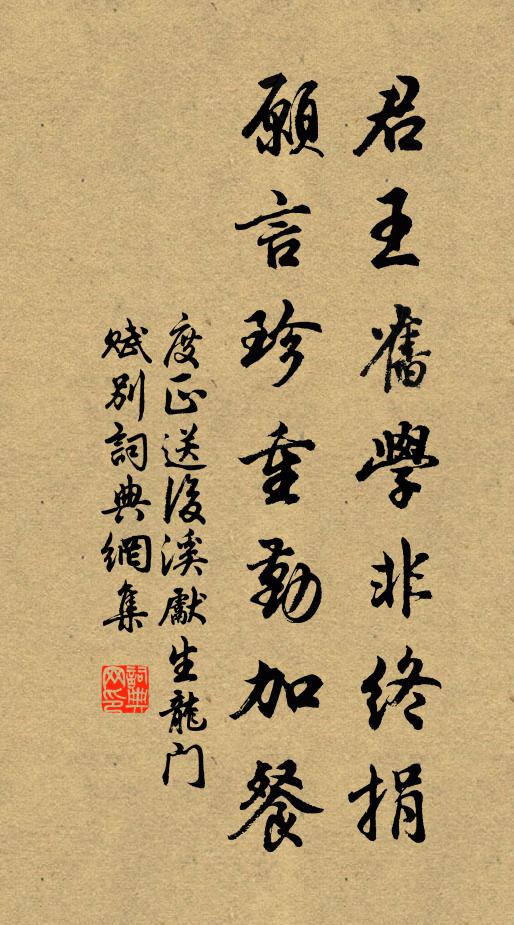 君王舊學非終捐
願言珍重勤加餐
度正送後溪獻生龍门
赋别詞典網集
詞典
网印